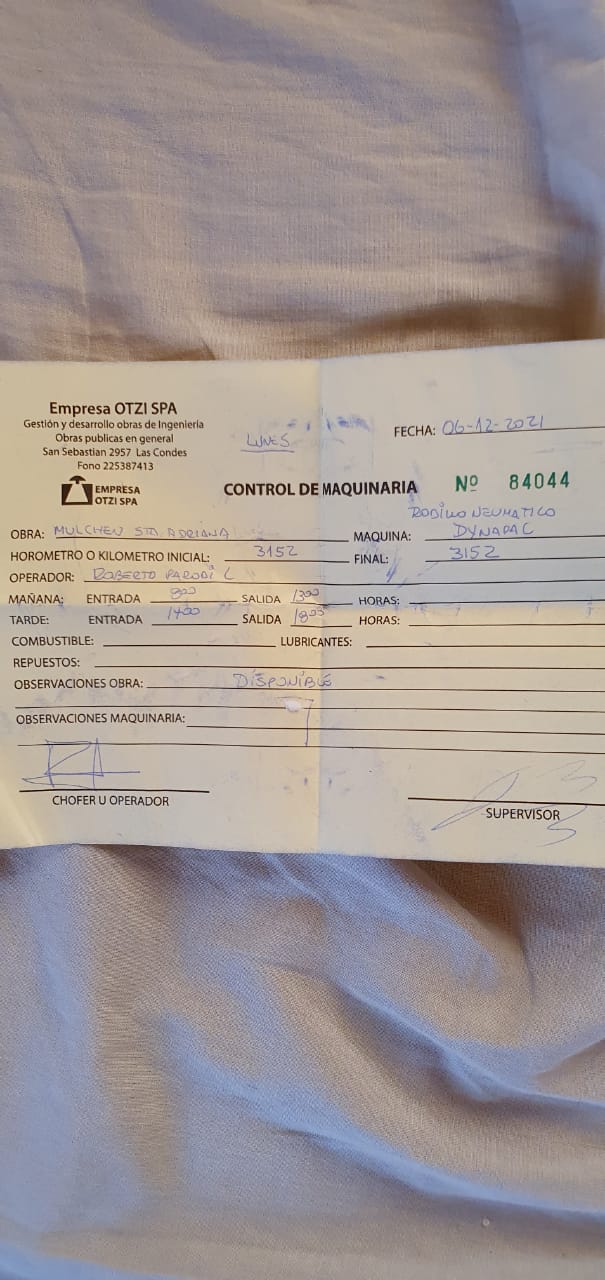 Empresa OTZI SPA
Gestión y desarrollo obras de Ingeniería
Obras publicas en general
San Sebastian 2957 Las Condes
Fono 225387413
EMPRESA
OTZI SPA
LUNES
FECHA: 06-12-2021
CONTROL DE MAQUINARIA
Nº 84044
RODILLO NEUMATICO
OBRA: MULCHEN STA. ADRIANA MAQUINA: DYNAPAC
HOROMETRO O KILOMETRO INICIAL: 3152 FINAL: 3152
OPERADOR: ROBERTO PARODI C
MAÑANA: ENTRADA 800 SALIDA 1300 HORAS:
TARDE: ENTRADA 1400 SALIDA 1800 HORAS:
COMBUSTIBLE: LUBRICANTES:
REPUESTOS:
OBSERVACIONES OBRA: DISPONIBLE
OBSERVACIONES MAQUINARIA:
CHOFER U OPERADOR SUPERVISOR